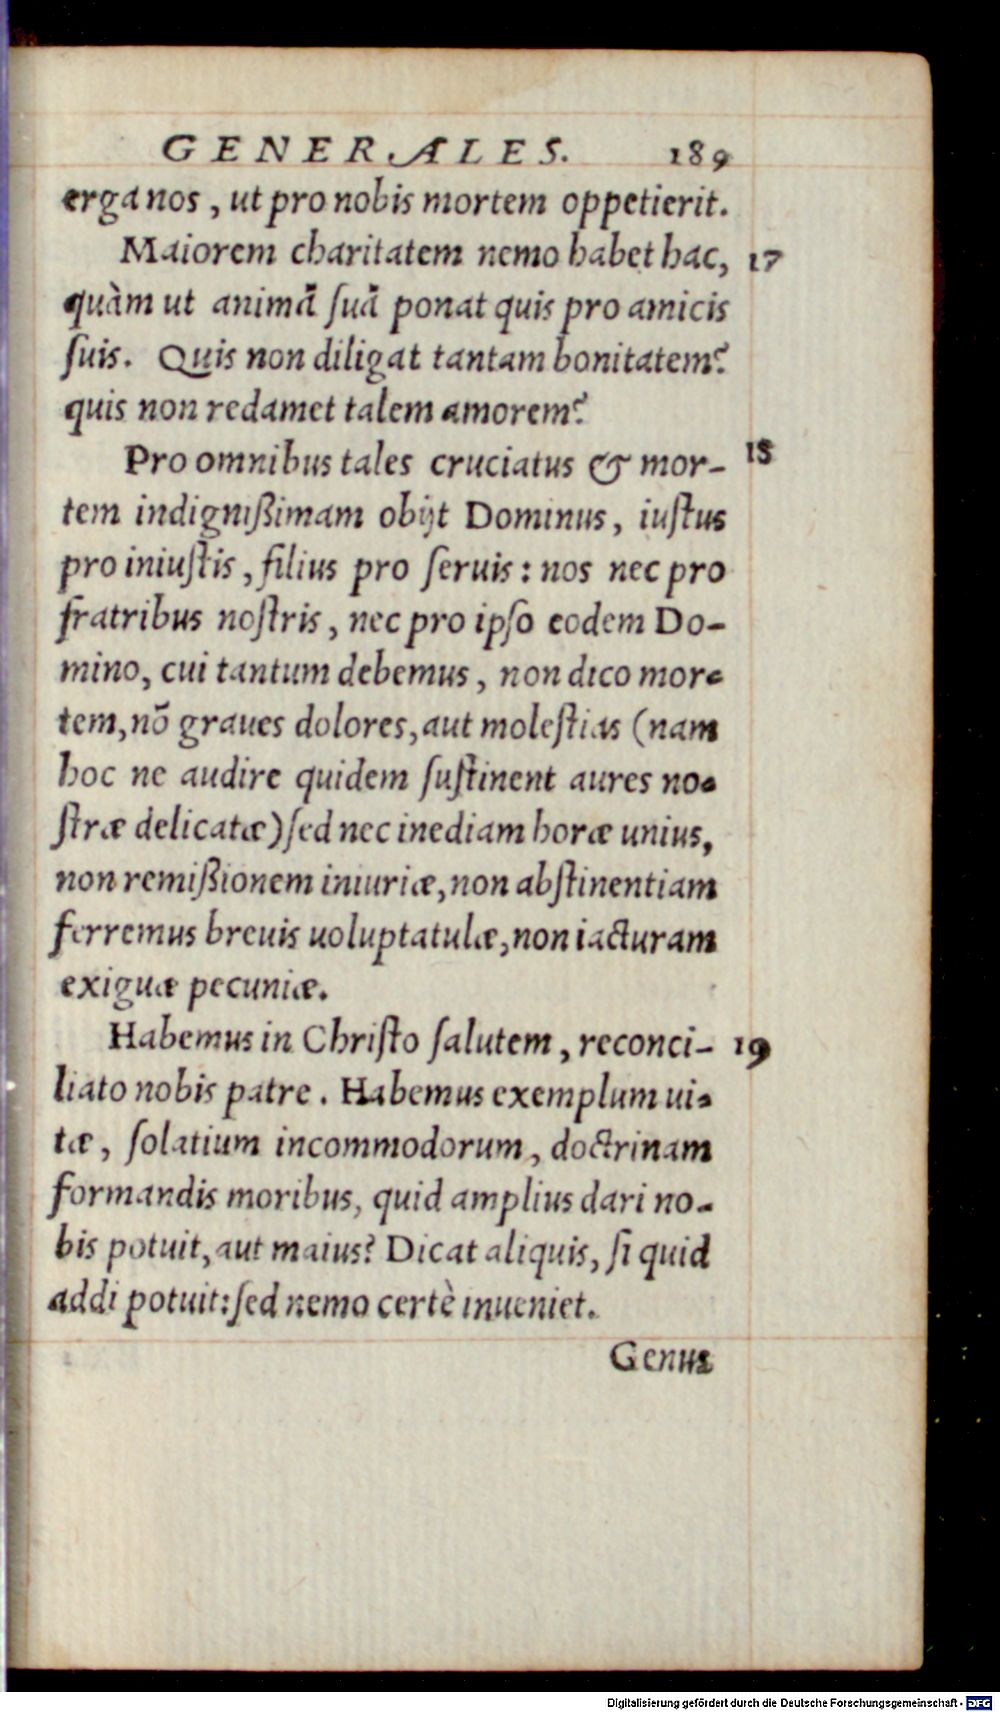 GENERALES. 189
erga nos, ut pro nobis mortem oppetierit.
Maiorem charitatem nemo habet hac, 17
quàm ut animā ſuā ponat quis pro amicis
ſuis. Quis non diligat tantam bonitatem?
quis non redamet talem amorem?
Pro omnibus tales cruciatus & mor- 18
tem indignißimam obijt Dominus, iuſtus
pro iniuſtis, filius pro ſeruis: nos nec pro
fratribus noſtris, nec pro ipſo eodem Do-
mino, cui tantum debemus, non dico mor-
tem, nō graues dolores, aut moleſtias (nam
hoc ne audire quidem ſuſtinent aures no-
ſtræ delicatæ) ſed nec inediam horæ unius,
non remißionem iniuriæ, non abſtinentiam
ferremus breuis uoluptatulæ, non iacturam
exiguæ pecuniæ.
Habemus in Chriſto ſalutem, reconci- 19
liato nobis patre. Habemus exemplum ui-
tæ, ſolatium incommodorum, doctrinam
formandis moribus, quid amplius dari no-
bis potuit, aut maius? Dicat aliquis, ſi quid
addi potuit: ſed nemo certè inueniet.
Genus
Digitalisierung gefördert durch die Deutsche Forschungsgemeinschaft - DFG